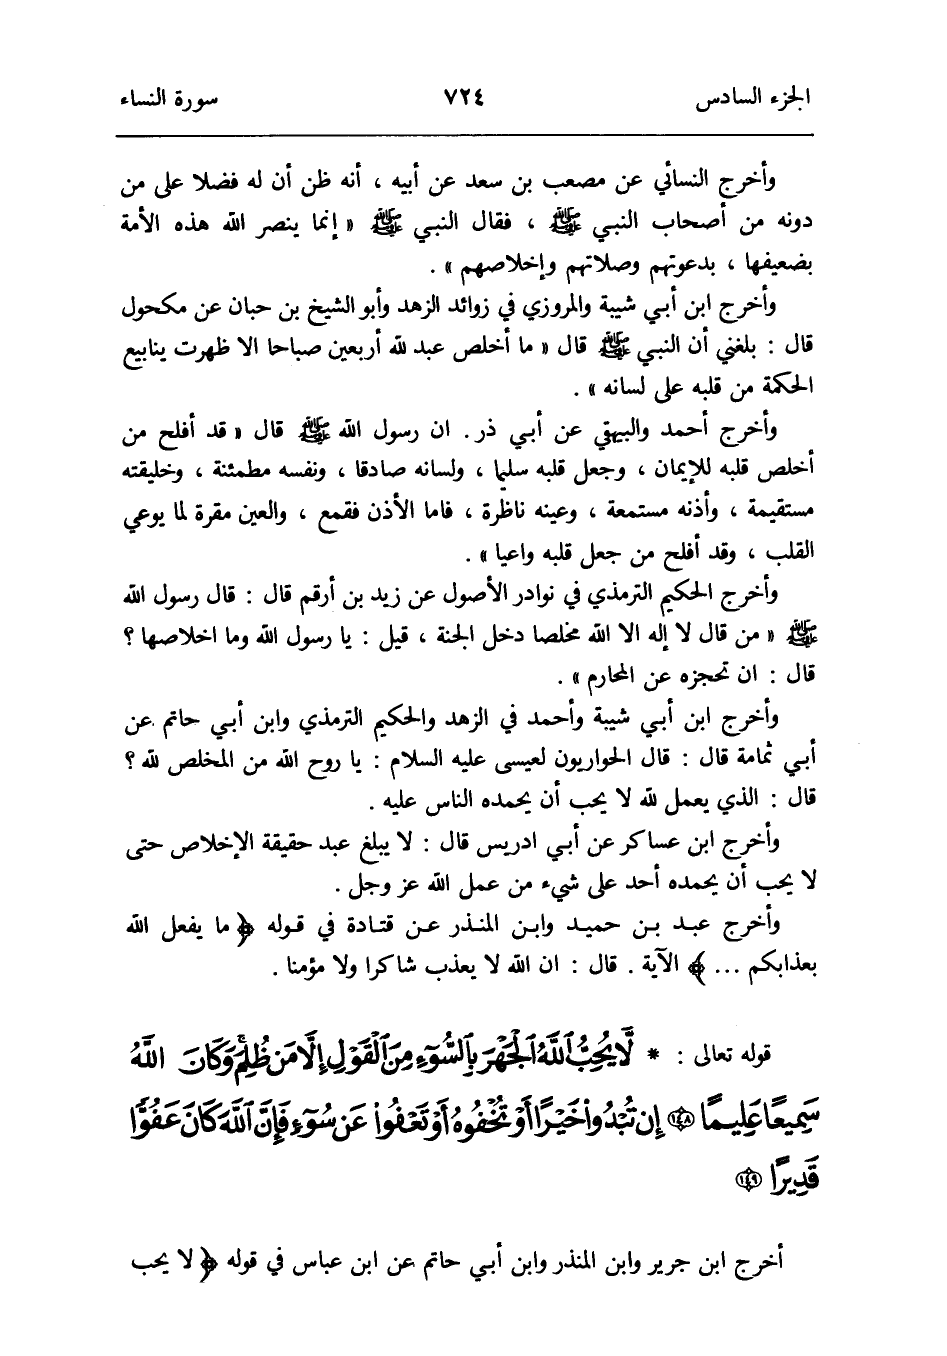 الجزء السادس ٧٢٤ سورة النساء
وأخرج النسائي عن مصعب بن سعد عن أبيه ، أنه ظن أن له فضلا على من
دونه من أصحاب النبي ﷺ ، فقال النبي ﷺ « إنما ينصر الله هذه الأمة
بضعيفها ، بدعوتهم وصلاتهم وإخلاصهم » .
وأخرج ابن أبي شيبة والمروزي في زوائد الزهد وأبو الشيخ بن حبان عن مكحول
قال : بلغني أن النبي ﷺ قال « ما أخلص عبد لله أربعين صباحا الا ظهرت ينابيع
الحكمة من قلبه على لسانه » .
وأخرج أحمد والبيهقي عن أبي ذر. ان رسول الله ﷺ قال « قد أفلح من
أخلص قلبه للإيمان ، وجعل قلبه سليما ، ولسانه صادقا ، ونفسه مطمئنة ، وخليقته
مستقيمة ، وأذنه مستمعة ، وعينه ناظرة ، فاما الأذن فقمع ، والعين مقرة لما يوعي
القلب ، وقد أفلح من جعل قلبه واعيا » .
وأخرج الحكيم الترمذي في نوادر الأصول عن زيد بن أرقم قال : قال رسول الله
ﷺ « من قال لا إله الا الله مخلصا دخل الجنة ، قيل : يا رسول الله وما اخلاصها ؟
قال : ان تحجزه عن المحارم » .
وأخرج ابن أبي شيبة وأحمد في الزهد والحكيم الترمذي وابن أبي حاتم عن
أبي ثمامة قال : قال الحواريون لعيسى عليه السلام : يا روح الله من المخلص لله ؟
قال : الذي يعمل لله لا يحب أن يحمده الناس عليه .
وأخرج ابن عساكر عن أبي ادريس قال : لا يبلغ عبد حقيقة الإخلاص حتى
لا يحب أن يحمده أحد على شيء من عمل الله عز وجل .
وأخرج عبد بن حميد وابن المنذر عن قتادة في قوله ﴿ ما يفعل الله
بعذابكم ... ﴾ الآية . قال : ان الله لا يعذب شاكرا ولا مؤمنا .
قوله تعالى : * لَّا يُحِبُّ ٱللَّهُ ٱلْجَهْرَ بِٱلسُّوٓءِ مِنَ ٱلْقَوْلِ إِلَّا مَن ظُلِمَ وَكَانَ ٱللَّهُ
سَمِيعًا عَلِيمًا ﴿١٤٨﴾ إِن تُبْدُوا۟ خَيْرًا أَوْ تُخْفُوهُ أَوْ تَعْفُوا۟ عَن سُوٓءٍ فَإِنَّ ٱللَّهَ كَانَ عَفُوًّا
قَدِيرًا ﴿١٤٩﴾
أخرج ابن جرير وابن المنذر وابن أبي حاتم عن ابن عباس في قوله ﴿ لا يحب